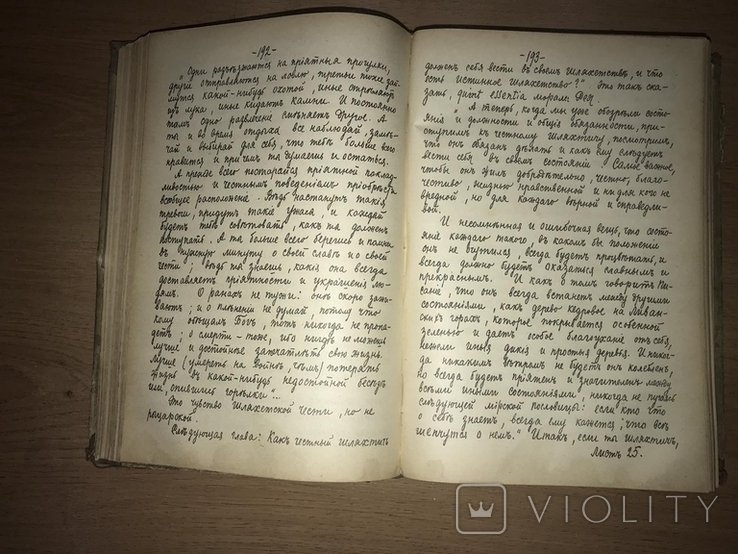 -192-
„Одни разъѣзжаются на прiятныя прогулки,
другiе отправляются на ловлю, третьи тоже зай-
мутся какой-нибудь охотой, иные стрѣляютъ
изъ лука, иные кидаютъ камни. И постоянно
тамъ одно развлеченiе смѣняетъ другое. А
ты и во время отдыха все наблюдай, замѣ-
чай и выбирай для себя, что тебѣ больше всего
нравится и при чемъ ты думаешь и остаться.
А прежде всего постарайся прiятной поклад-
ливостью и честнымъ поведенiемъ прiобрѣсть
всеобщее расположенiе. Вѣдь настанутъ такiя
тревоги, придутъ такiе ужасы, и каждый
будетъ тебѣ совѣтовать, какъ ты долженъ
поступать. А ты больше всего берегись и помни
въ ту минуту о своей славѣ и о своей
чести; вѣдь ты знаешь, какiя она всегда
доставляетъ прiятности и украшенiя лю-
дямъ. О ранахъ не тужи: онѣ скоро зажи-
ваютъ; и о плѣненiи не думай, потому что
кому обѣщалъ Богъ, тотъ никогда не пропа-
детъ; о смерти - тоже, ибо нигдѣ не можешь
лучше и достойнѣе запечатлѣть свою жизнь.
Лучше умереть на войнѣ, чѣмъ потерять
жизнь въ какой-нибудь недостойной бесѣдѣ
или, опившись горѣлки"...
Это чувство шляхетской чести, но не
рыцарской.
Слѣдующая глава: Какъ честный шляхтичъ
-193-
долженъ себя вести въ своемъ шляхетствѣ, и что
есть истинное шляхетство?" Это такъ ска-
зать, quint essentia морали Рея.
„А теперь, когда мы уже обсудили состо-
янiе и должности и общiя обязанности, при-
ступимъ къ честному шляхтичу, посмотримъ,
что онъ обязанъ дѣлать и какъ ему слѣдуетъ
вести себя въ своемъ состоянiи. Самое важное,
чтобы онъ жилъ добродѣтельно, честно, благо-
честиво, жизнью нравственной и ни для кого не
вредной, но для каждаго вѣрной и справедли-
вой.
И несомнѣнная и ошибочная вещь, что состо-
янiе каждаго такого, въ какомъ бы положенiи
онъ не очутился, всегда будетъ процвѣтать, и
всегда должно будетъ оказаться славнымъ и
прекраснымъ. И какъ о томъ говоритъ Пи-
санiе, что онъ всегда встанетъ между другими
состоянiями, какъ дерево кедровое на Ливан-
скихъ горахъ, которое покрывается особенной
зеленью и даетъ особое благоуханiе отъ себя,
нежели иныя дикiя и простыя деревья. И никог-
да никакимъ вѣтрамъ не будетъ онъ колебленъ,
но всегда будетъ прiятенъ и значителенъ между
всѣми иными состоянiями, никогда не
слѣдующей мiрской пословицы: если кто что
о себѣ знаетъ, всегда ему кажется, что всѣ
шепчутся о немъ." Итакъ, если ты шляхтичъ,
Листъ 25.
VIOLITY